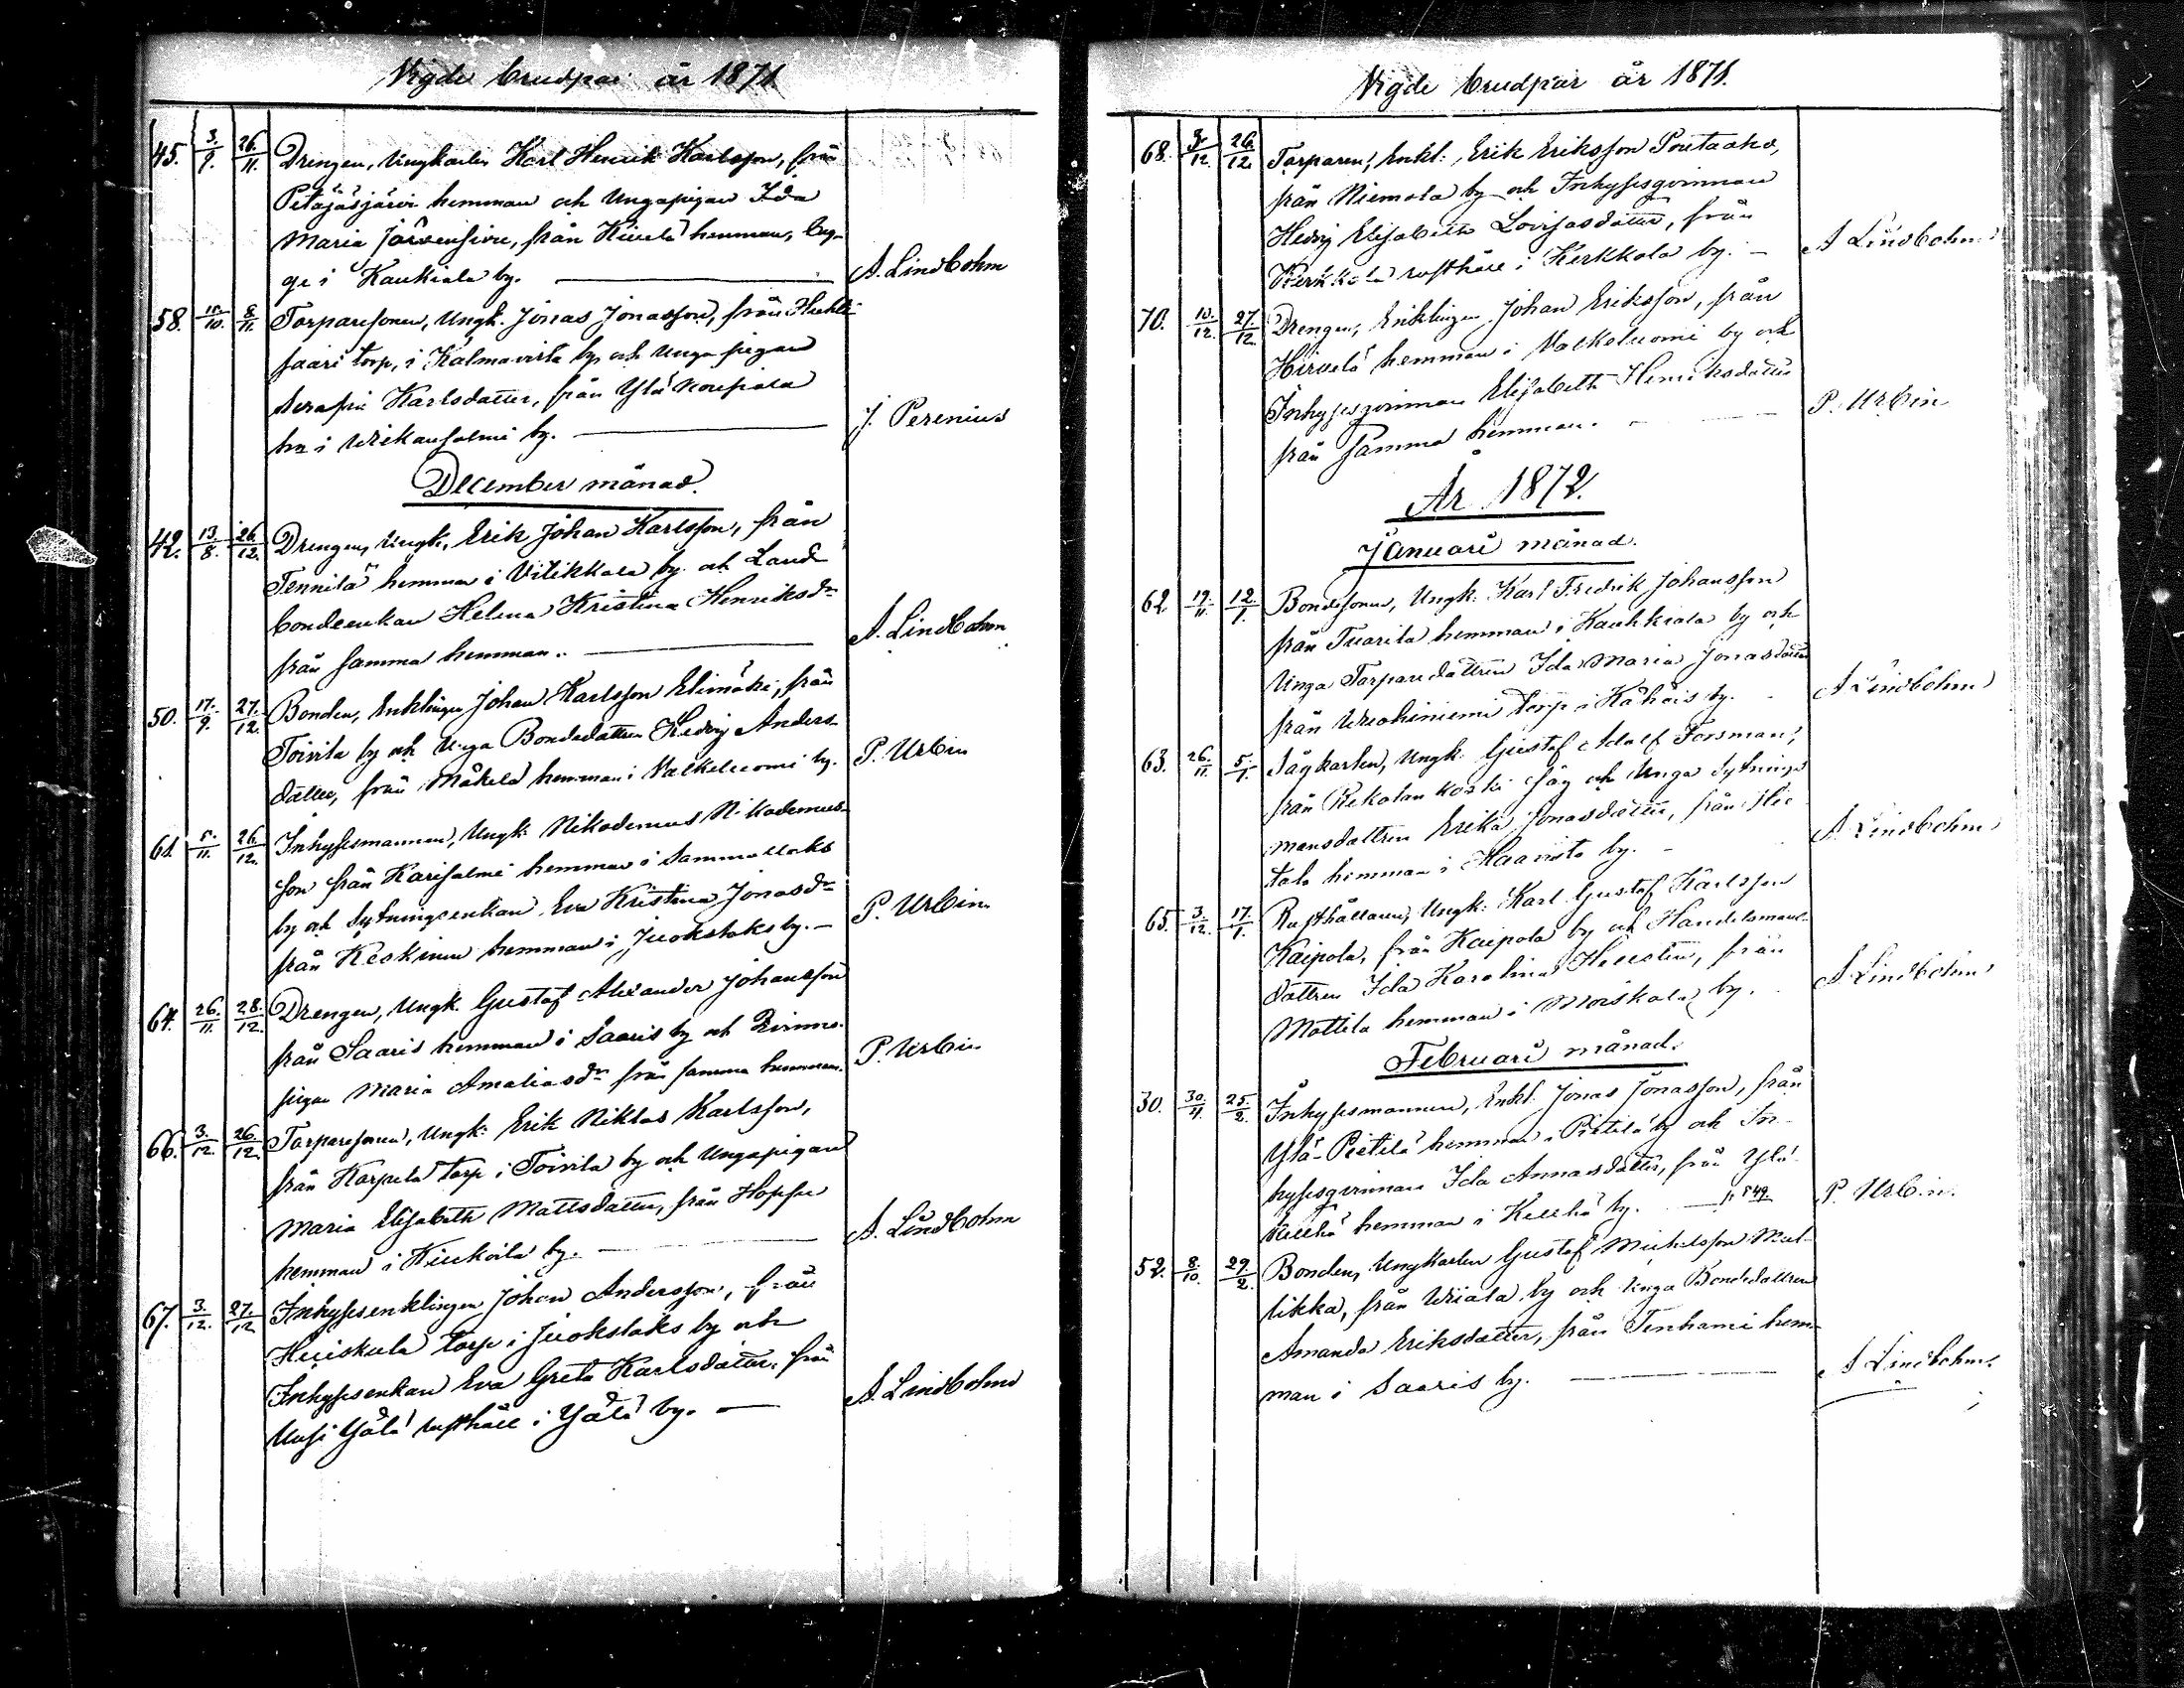 Vigde brudpar år 1871
45. 3./9. 26./11. Drengen, Ungkarlen Karl Henrik Karlsson, från
Petäjäsjärvi hemman och Ungapigan Ida
Maria Jöransson, från Hirvelä hemman, beg-
ge i Kaukiala by. — A. Lindbohm
58. 15./10. 5./11. Torparesonen, Ungk. Jonas Jonasson, från Huhti-
saari torp, i Kalmavirta by och Unga pigan
Serafia Karlsdotter, från Ylä Nousiala
hn i Urikansalmi by. — J. Perenius
December månad.
42. 13./8. 26./12. Drengen, Ungk. Erik Johan Karlsson, från
Tennilä hemman i Vitikkala by och Land-
bondeenkan Helena Kristina Henriksdr
från samma hemman. — A. Lindbohm
50. 17./9. 27./12. Bonden, Enklingen Johan Karlsson Elimäki, från
Toivila by och Unga Bondedottren Hedvig Anders-
dotter, från Mäkelä hemman i Valkeluomi by. P. Urbin
61. 5./11. 26./12. Inhysesmannen, Ungk: Nikodemus Nikodemus-
son från Karisalmi hemman i Sammallaks
by och Sytningsenkan Eva Kristina Jonasdr
från Keskinen hemman i Juokslaks by. — P. Urbin
64. 26./11. 28./12. Drengen, Ungk. Gustaf Alexander Johansson
från Saaris hemman i Saaris by och Qvinns-
pigan Maria Amaliasdr från samma hemman. P. Urbin
66. 3./12. 26./12. Torparesonen, Ungk: Erik Niklas Karlsson,
från Korpela torp i Toivila by och Ungapigan
Maria Elisabeth Mattsdotter, från Hopsu
hemman i Kiukoila by. — A. Lindbohm
67. 3./12. 27./12 Inhysesenklingen Johan Andersson, från
Huiskula torp i Juokslaks by och
Inhysesenkan Eva Greta Karlsdotter, från
Uusi Yölä rusthåll i Yölä by. — A. Lindbohm
Vigde brudpar år 1871.
68. 3/12. 26/12. Torparen, Enkl:, Erik Eriksson Poutaaho,
från Niemola by och Inhysesqvinnan
Hedvig Elisabeth Lovisasdotter, från
Kerkkola rusthåll i Kerkkola by. — A Lindbohm
70. 10./12. 27./12. Drengen, Enklingen Johan Eriksson, från
Hirvelä hemman i Valkeluomi by och
Inhysesqvinnan Elisabeth Henriksdotter
från samma hemman. — P. Urbin
År 1872.
Januari månad.
62 19./11. 12./1. Bondesonen, Ungk: Karl Fredrik Johansson
från Tuarila hemman i Kauhkiala by och
Unga Torparedottren Ida Maria Jonasdotter
från Wuohiniemi torp i Kähöis by. A Lindbohm
63. 26./11. 5./1. Sågkarlen, Ungk: Gustaf Adolf Forsman,
från Rekolan koski såg och Unga Sytnings
mansdottren Erika Jonasdotter, från Hie-
tala hemman i Haavisto by. — A Lindbohm
65. 3./12. 17./1. Rusthållaren, Ungk: Karl Gustaf Karlsson
Kaipola, från Kaipola by och Handelsmans-
dottren Ida Karolina Hellsten, från
Mattila hemman i Moiskala by. A Lindbohm
Februari månad.
30. 30./4. 25./2. Inhysesmannen, Enkl. Jonas Jonasson, från
Ylä-Pietilä hemman i Pietilä by och In-
hysesqvinnan Ida Annasdotter, från Ylä-
hemman i by. — P. Urbin.
52. 8./10. 29./2. Bonden, Ungkarlen Gustaf Mickelsson Mul-
likka, från Wiiala by och Unga Bondedottren
Amanda Eriksdotter, från Tenhami hem-
man i Saaris by. — A Lindbohm.